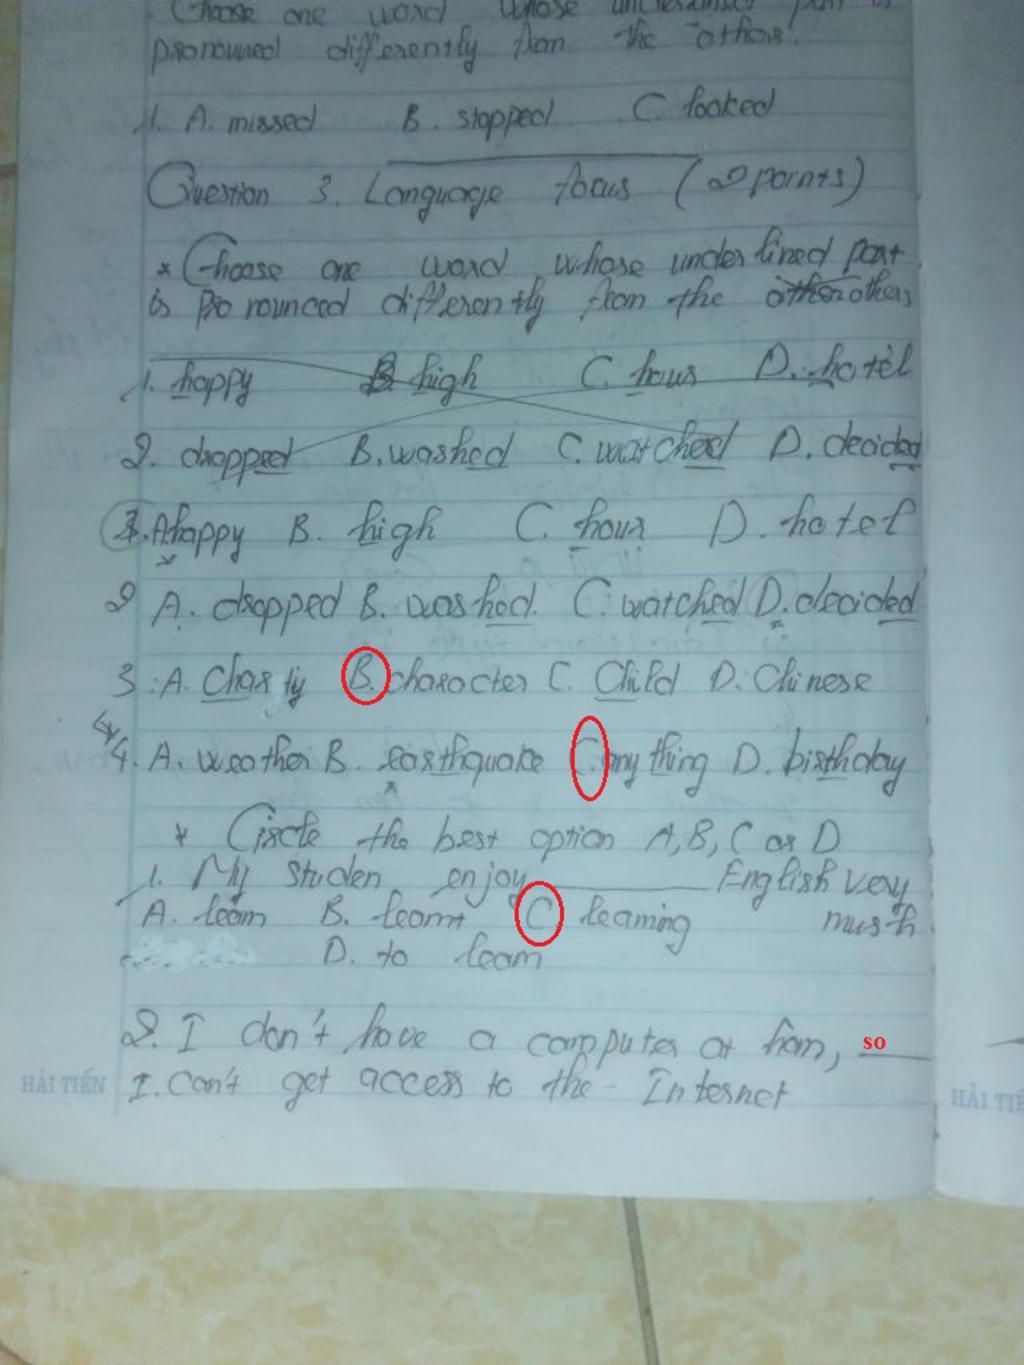 Choose one word whose underlined part is
pronounced differently from the others.
1. A. missed B. stopped C. looked
Question 3. Language focus (2 points)
* Choose one word whose underlined part
is pronounced differently from the others
1. happy B high C. hour D. hotel
2. dropped B. washed C. watched D. decided
1. A happy B. high C. hour D. hotel
2 A. dropped B. washed. C. watched D. decided
3. A. Charty B. character C. Child D. Chinese
4. A. weather B. earthquake C. anything D. birthday
* Circle the best option A, B, C or D
1. My studen enjoy ______ English very
A. learn B. learnt C learning mush
D. to learn
2. I don't have a computer at hom, so
I. can't get access to the Internet
HẢI TIẾN
HẢI TIẾ